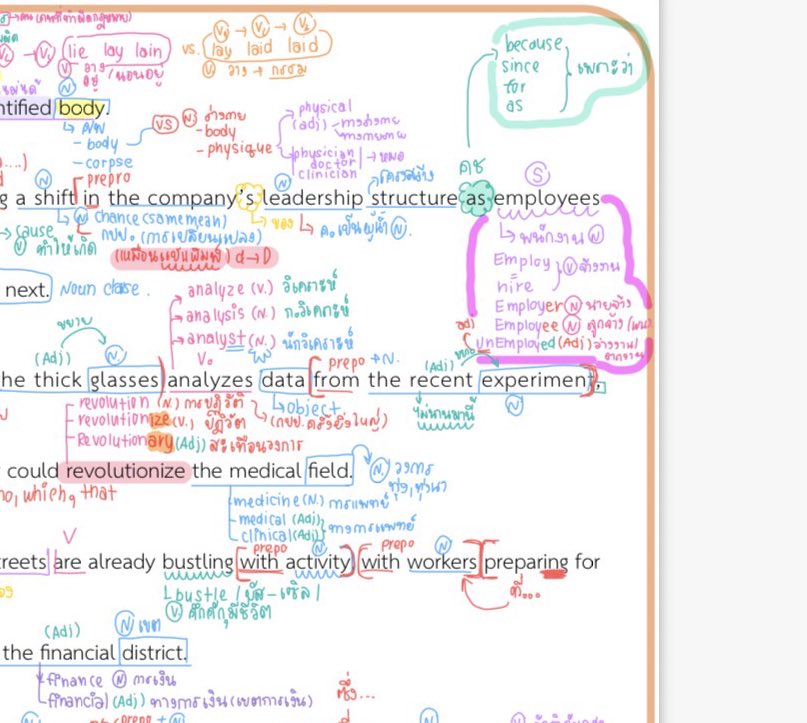 V₁ → V₂ → V₃
lie lay lain vs. lay laid laid
Ⓥ วาง → กรรม
อยู่ / นอนอยู่
because
since
for
as
เพราะว่า
ntified body.
ศพ
- body
- corpse
VS Ⓝ ร่างกาย
- body
- physique
physical
(adj)
physician
doctor
clinician
→ หมอ
prepro
Ⓢ
g a shift in the company's leadership structure as employees
Ⓝ chance (same mean)
กขป. (การเปลี่ยนแปลง)
ของ
ค.เป็นผู้นำ Ⓝ.
โครงสร้าง
→ cause
Ⓥ ทำให้เกิด
d → D
พนักงาน Ⓝ
Employ
hire
Ⓥ จ้างงาน
Employer Ⓝ นายจ้าง
Employee Ⓝ ลูกจ้าง
adj
UnEmployed (Adj) ว่างงาน
next. Noun clase.
analyze (v.) วิเคราะห์
analysis (N.) ก.วิเคราะห์
analyst (N.) นักวิเคราะห์
ขยาย
(Adj) Ⓝ V. prepo + N. (Adj) ขยาย
he thick glasses analyzes data from the recent experiment,
object
ไม่นานมานี้
Ⓝ
revolution (N.) การปฏิวัติ
revolutionize (V.) ปฏิวัติ
Revolutionary (Adj) สะเทือนวงการ
could revolutionize the medical field.
Ⓝ วงการ
ทุ่ง, ทุ่งนา
who, which, that
medicine (N.) การแพทย์
medical (Adj)
clinical (Adj)
ทางการแพทย์
V prepo Ⓝ prepo Ⓝ
treets are already bustling with activity with workers preparing for
bustle / บัส-เซิล /
Ⓥ คึกคักมีชีวิต
ที่...
(Adj) Ⓝ เขต
the financial district.
finance Ⓝ การเงิน
financial (Adj) ทางการเงิน (เขตการเงิน)
ซึ่ง...